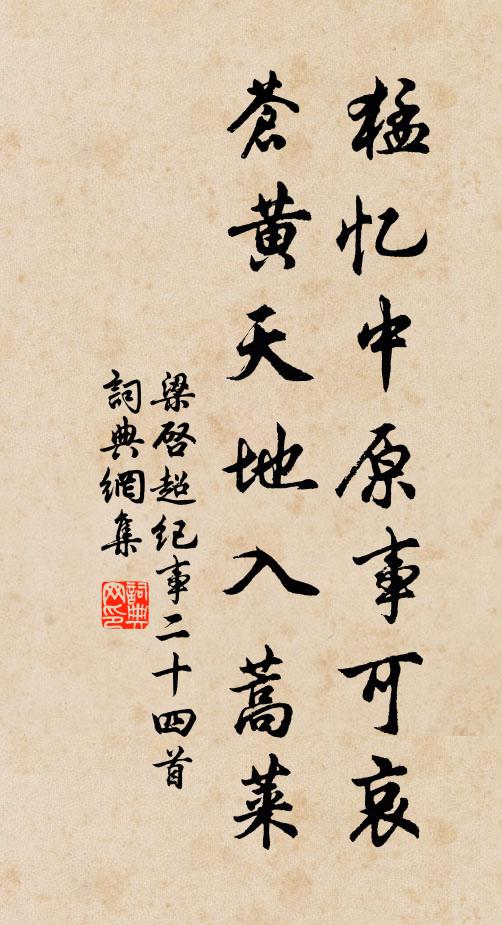 猛忆中原事可哀
蒼黄天地入蒿莱
梁啓超纪事二十四首
詞典網集
詞典網印